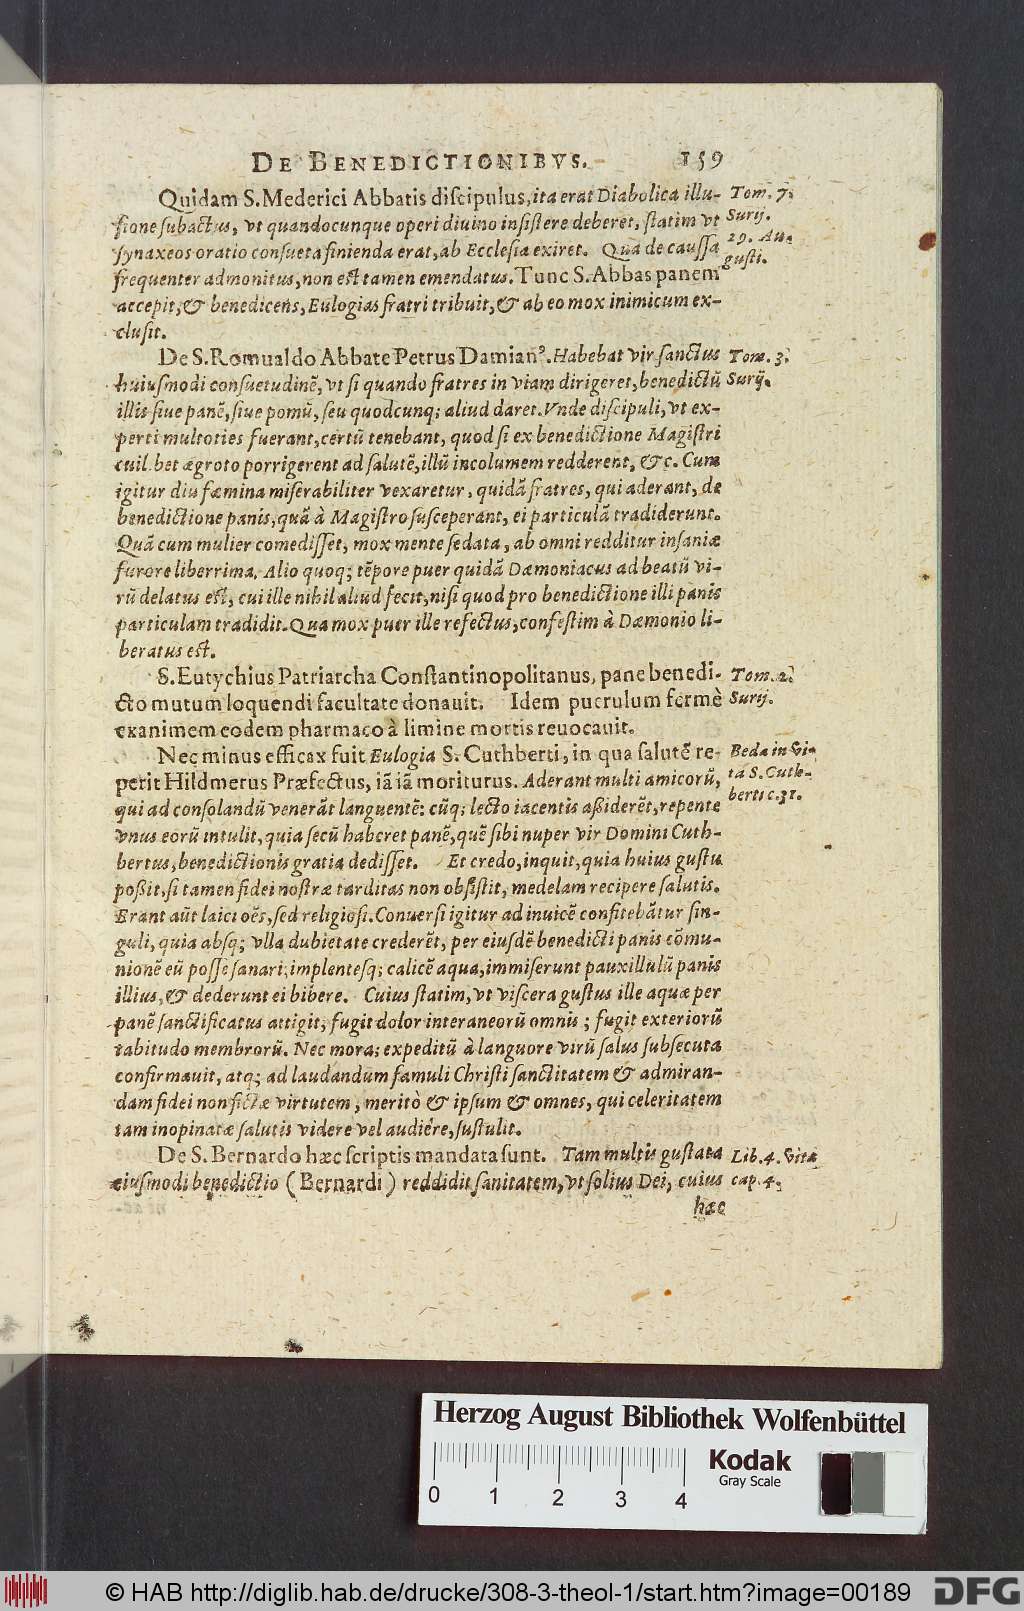 DE BENEDICTIONIBVS. 159
Quidam S. Mederici Abbatis discipulus, ita erat Diabolica illu-
sione subactus, vt quandocunque operi diuino insistere deberet, statim vt
synaxeos oratio consueta finienda erat, ab Ecclesia exiret. Qua de caussa
frequenter admonitus, non est tamen emendatus. Tunc S. Abbas panem
accepit, & benedicens, Eulogias fratri tribuit, & ab eo mox inimicum ex-
clusit.
Tom. 7.
Surij.
29. Au-
gusti.
De S. Romualdo Abbate Petrus Damianꝰ. Habebat vir sanctus
huiusmodi consuetudinē, vt si quando fratres in viam dirigeret, benedictū
illis siue panē, siue pomū, seu quodcunq; aliud daret. Vnde discipuli, vt ex-
perti multoties fuerant, certū tenebant, quod si ex benedictione Magistri
cuilibet ægroto porrigerent ad salutē, illū incolumem redderent, &c. Cum
igitur diu fæmina miserabiliter vexaretur, quidā fratres, qui aderant, de
benedictione panis, quā à Magistro susceperant, ei particulā tradiderunt.
Quā cum mulier comedisset, mox mente sedata, ab omni redditur insaniæ
furore liberrima. Alio quoq; tēpore puer quidā Dæmoniacus ad beatū vi-
rū delatus est, cui ille nihil aliud fecit, nisi quod pro benedictione illi panis
particulam tradidit. Qua mox puer ille refectus, confestim à Dæmonio li-
beratus est.
Tom. 3.
Surij.
S. Eutychius Patriarcha Constantinopolitanus, pane benedi-
cto mutum loquendi facultate donauit. Idem puerulum fermè
exanimem eodem pharmaco à limine mortis reuocauit.
Tom. 2.
Surij.
Nec minus efficax fuit Eulogia S. Cuthberti, in qua salutē re-
perit Hildmerus Præfectus, iā iā moriturus. Aderant multi amicorū,
qui ad consolandū venerāt languentē: cūq; lecto iacentis aßiderēt, repente
vnus eorū intulit, quia secū haberet panē, quē sibi nuper vir Domini Cuth-
bertus, benedictionis gratia dedisset. Et credo, inquit, quia huius gustu
poßit, si tamen fidei nostræ tarditas non obsistit, medelam recipere salutis.
Erant aūt laici oēs, sed religiosi. Conuersi igitur ad inuicē confitebātur sin-
guli, quia absq; vlla dubietate crederēt, per eiusdē benedicti panis cōmu-
nionē eū posse sanari: implentesq; calicē aqua, immiserunt pauxillulū panis
illius, & dederunt ei bibere. Cuius statim, vt viscera gustus ille aquæ per
panē sanctificatus attigit, fugit dolor interaneorū omnis; fugit exteriorū
tabitudo membrorū. Nec mora; expeditū à languore virū salus subsecuta
confirmauit, atq; ad laudandum famuli Christi sanctitatem & admiran-
dam fidei non fictæ virtutem, meritò & ipsum & omnes, qui celeritatem
tam inopinatæ salutis videre vel audiêre, sustulit.
Beda in Vi-
ta S. Cuth-
berti c. 31.
De S. Bernardo hæc scriptis mandata sunt. Tam multis gustata
eiusmodi benedictio (Bernardi) reddidit sanitatem, vt solius Dei, cuius
hæc
Lib. 4. Vitæ
cap. 4.
Herzog August Bibliothek Wolfenbüttel
Kodak
Gray Scale
0 1 2 3 4
© HAB http://diglib.hab.de/drucke/308-3-theol-1/start.htm?image=00189
DFG